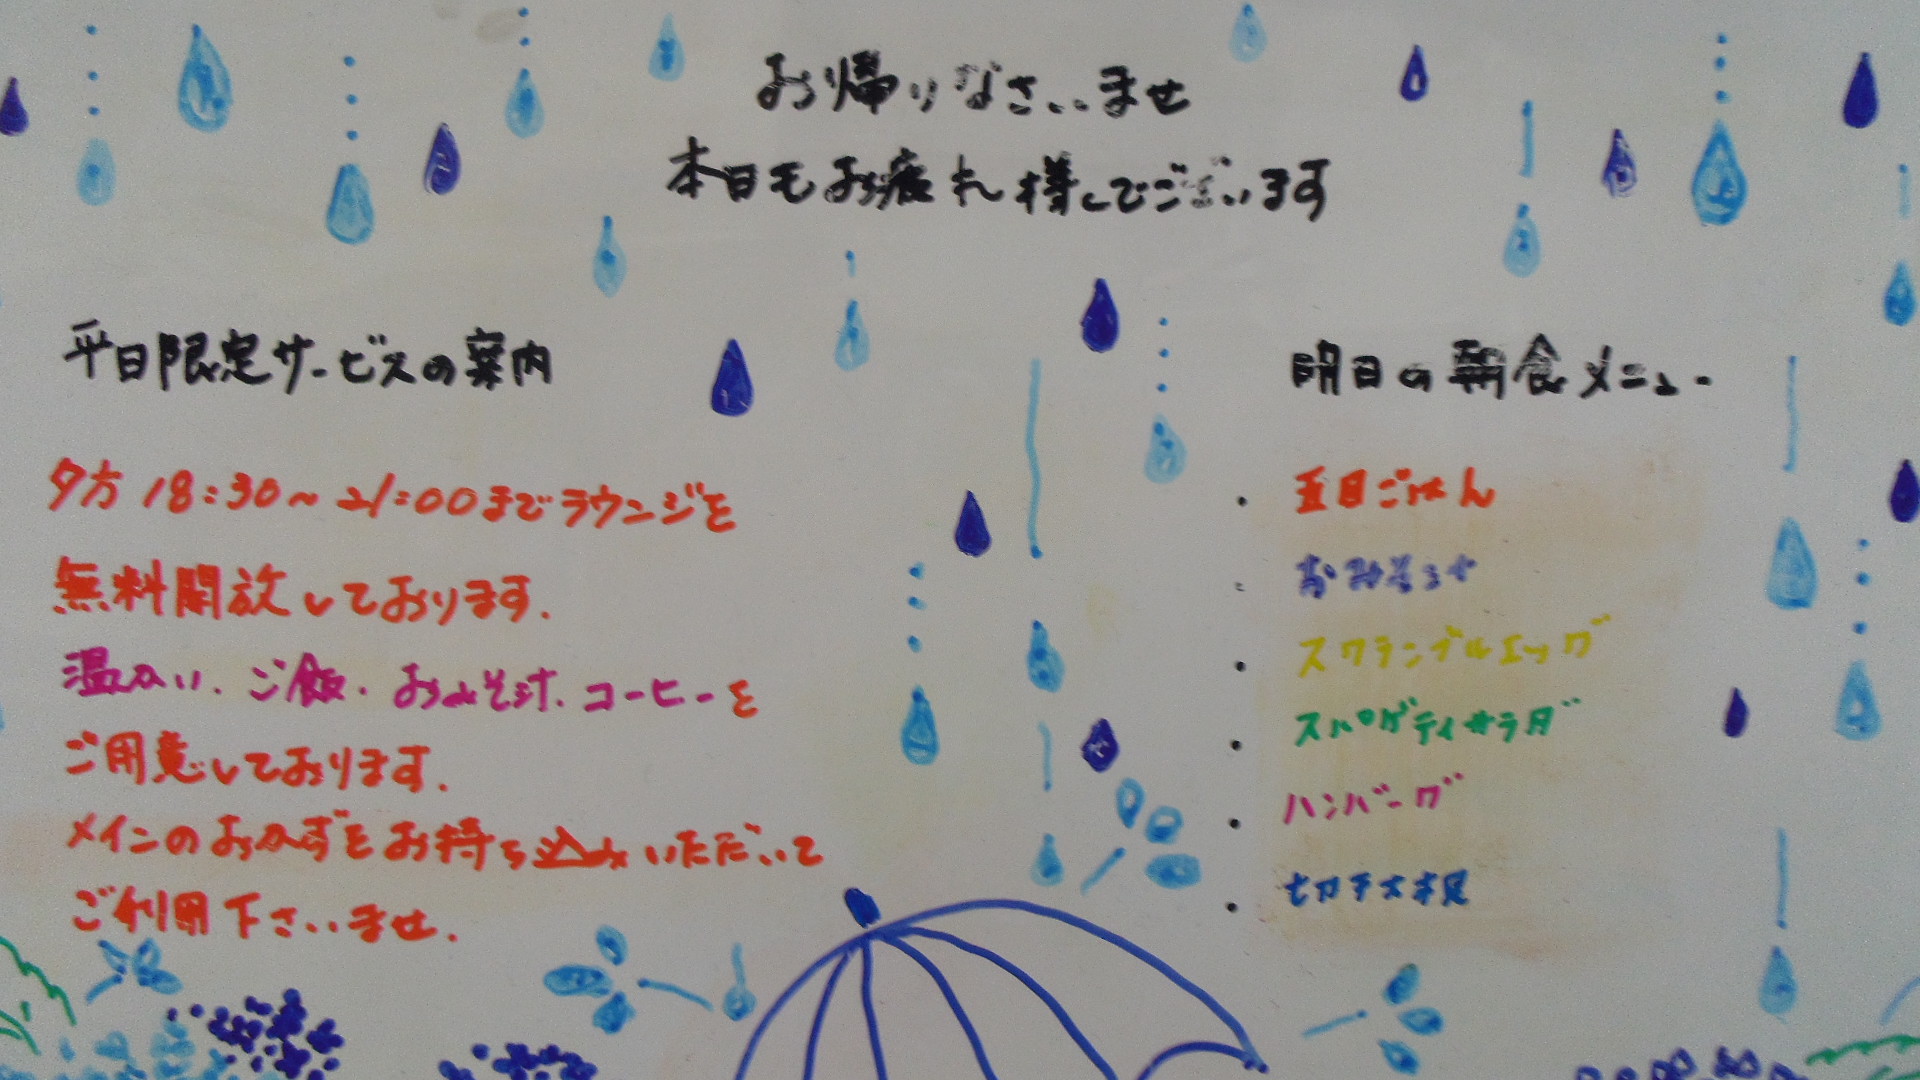 お帰りなさいませ
本日もお疲れ様でございます
平日限定サービスの案内
夕方18:30~21:00までラウンジを
無料開放しております.
温かい、ご飯・おみそ汁、コーヒーを
ご用意しております.
メインのおかずをお持ち込みいただいて
ご利用下さいませ.
明日の朝食メニュー
・五目ごはん
・おみそ汁
・スクランブルエッグ
・スパゲティサラダ
・ハンバーグ